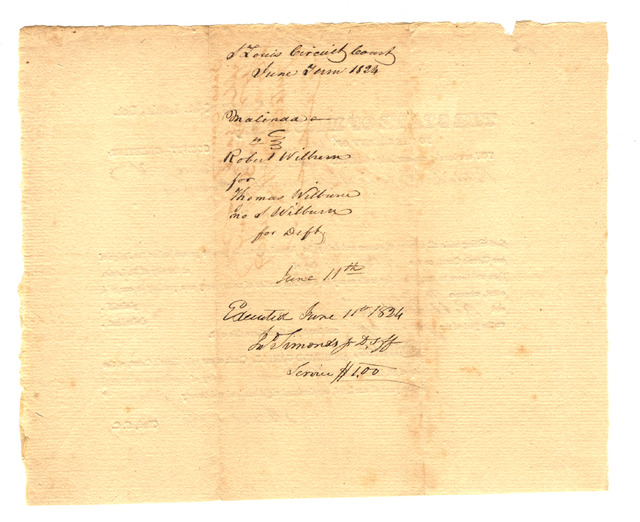 St Louis Circuit Court
June Term 1824
Malinda
vs
Robert Wilburn
for
Thomas Wilburn
Jno S Wilburn
for Deft
June 11th
Executed June 11th 1824
Jno Simonds Jr D. Shff
Service $1.00